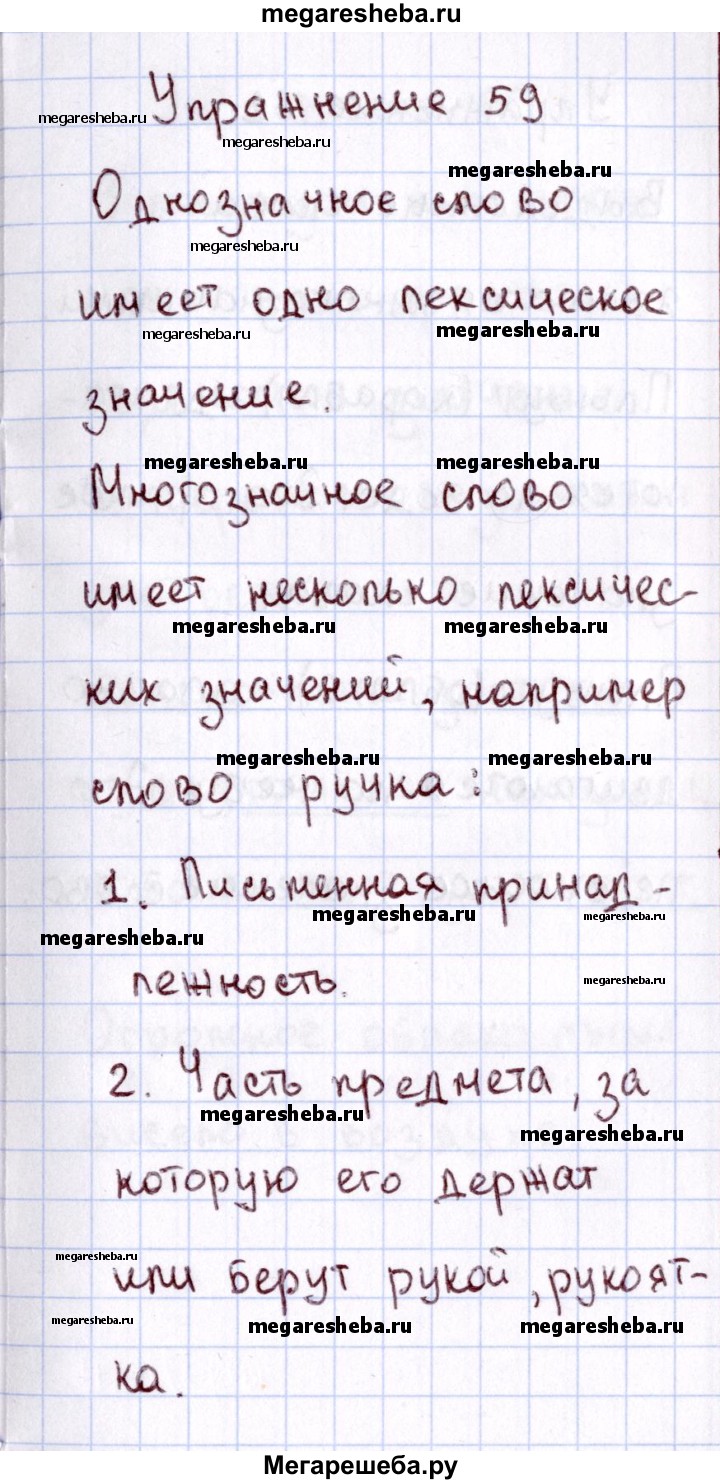 megaresheba.ru
Упражнение 59
megaresheba.ru
megaresheba.ru
megaresheba.ru
Однозначное слово
megaresheba.ru
имеет одно лексическое
megaresheba.ru megaresheba.ru
значение.
megaresheba.ru megaresheba.ru
Многозначное слово
имеет несколько лексичес-
megaresheba.ru megaresheba.ru
ких значений, например
megaresheba.ru megaresheba.ru
слово ручка:
1. Письменная принад-
megaresheba.ru megaresheba.ru
megaresheba.ru
лежность.
megaresheba.ru
2. Часть предмета, за
megaresheba.ru
megaresheba.ru
которую его держат
megaresheba.ru
или берут рукой, рукоят-
megaresheba.ru megaresheba.ru megaresheba.ru
ка.
Мегарешеба.ру